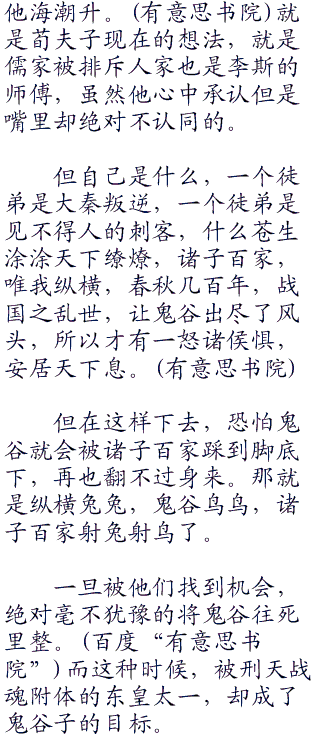 他海潮升。(有意思书院)就
是荀夫子现在的想法，就是
儒家被排斥人家也是李斯的
师傅，虽然他心中承认但是
嘴里却绝对不认同的。
但自己是什么，一个徒
弟是大秦叛逆，一个徒弟是
见不得人的刺客，什么苍生
涂涂天下缭燎，诸子百家，
唯我纵横，春秋几百年，战
国之乱世，让鬼谷出尽了风
头，所以才有一怒诸侯惧，
安居天下息。(有意思书院)
但在这样下去，恐怕鬼
谷就会被诸子百家踩到脚底
下，再也翻不过身来。那就
是纵横兔兔，鬼谷鸟鸟，诸
子百家射兔射鸟了。
一旦被他们找到机会，
绝对毫不犹豫的将鬼谷往死
里整。(百度“有意思书
院”)而这种时候，被刑天战
魂附体的东皇太一，却成了
鬼谷子的目标。